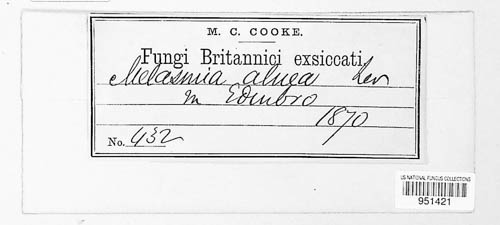 M. C. COOKE.
Fungi Britannici exsiccati
Melasmia alnea Lev
in Edinbro
1870
No. 432
US NATIONAL FUNGUS COLLECTIONS
951421